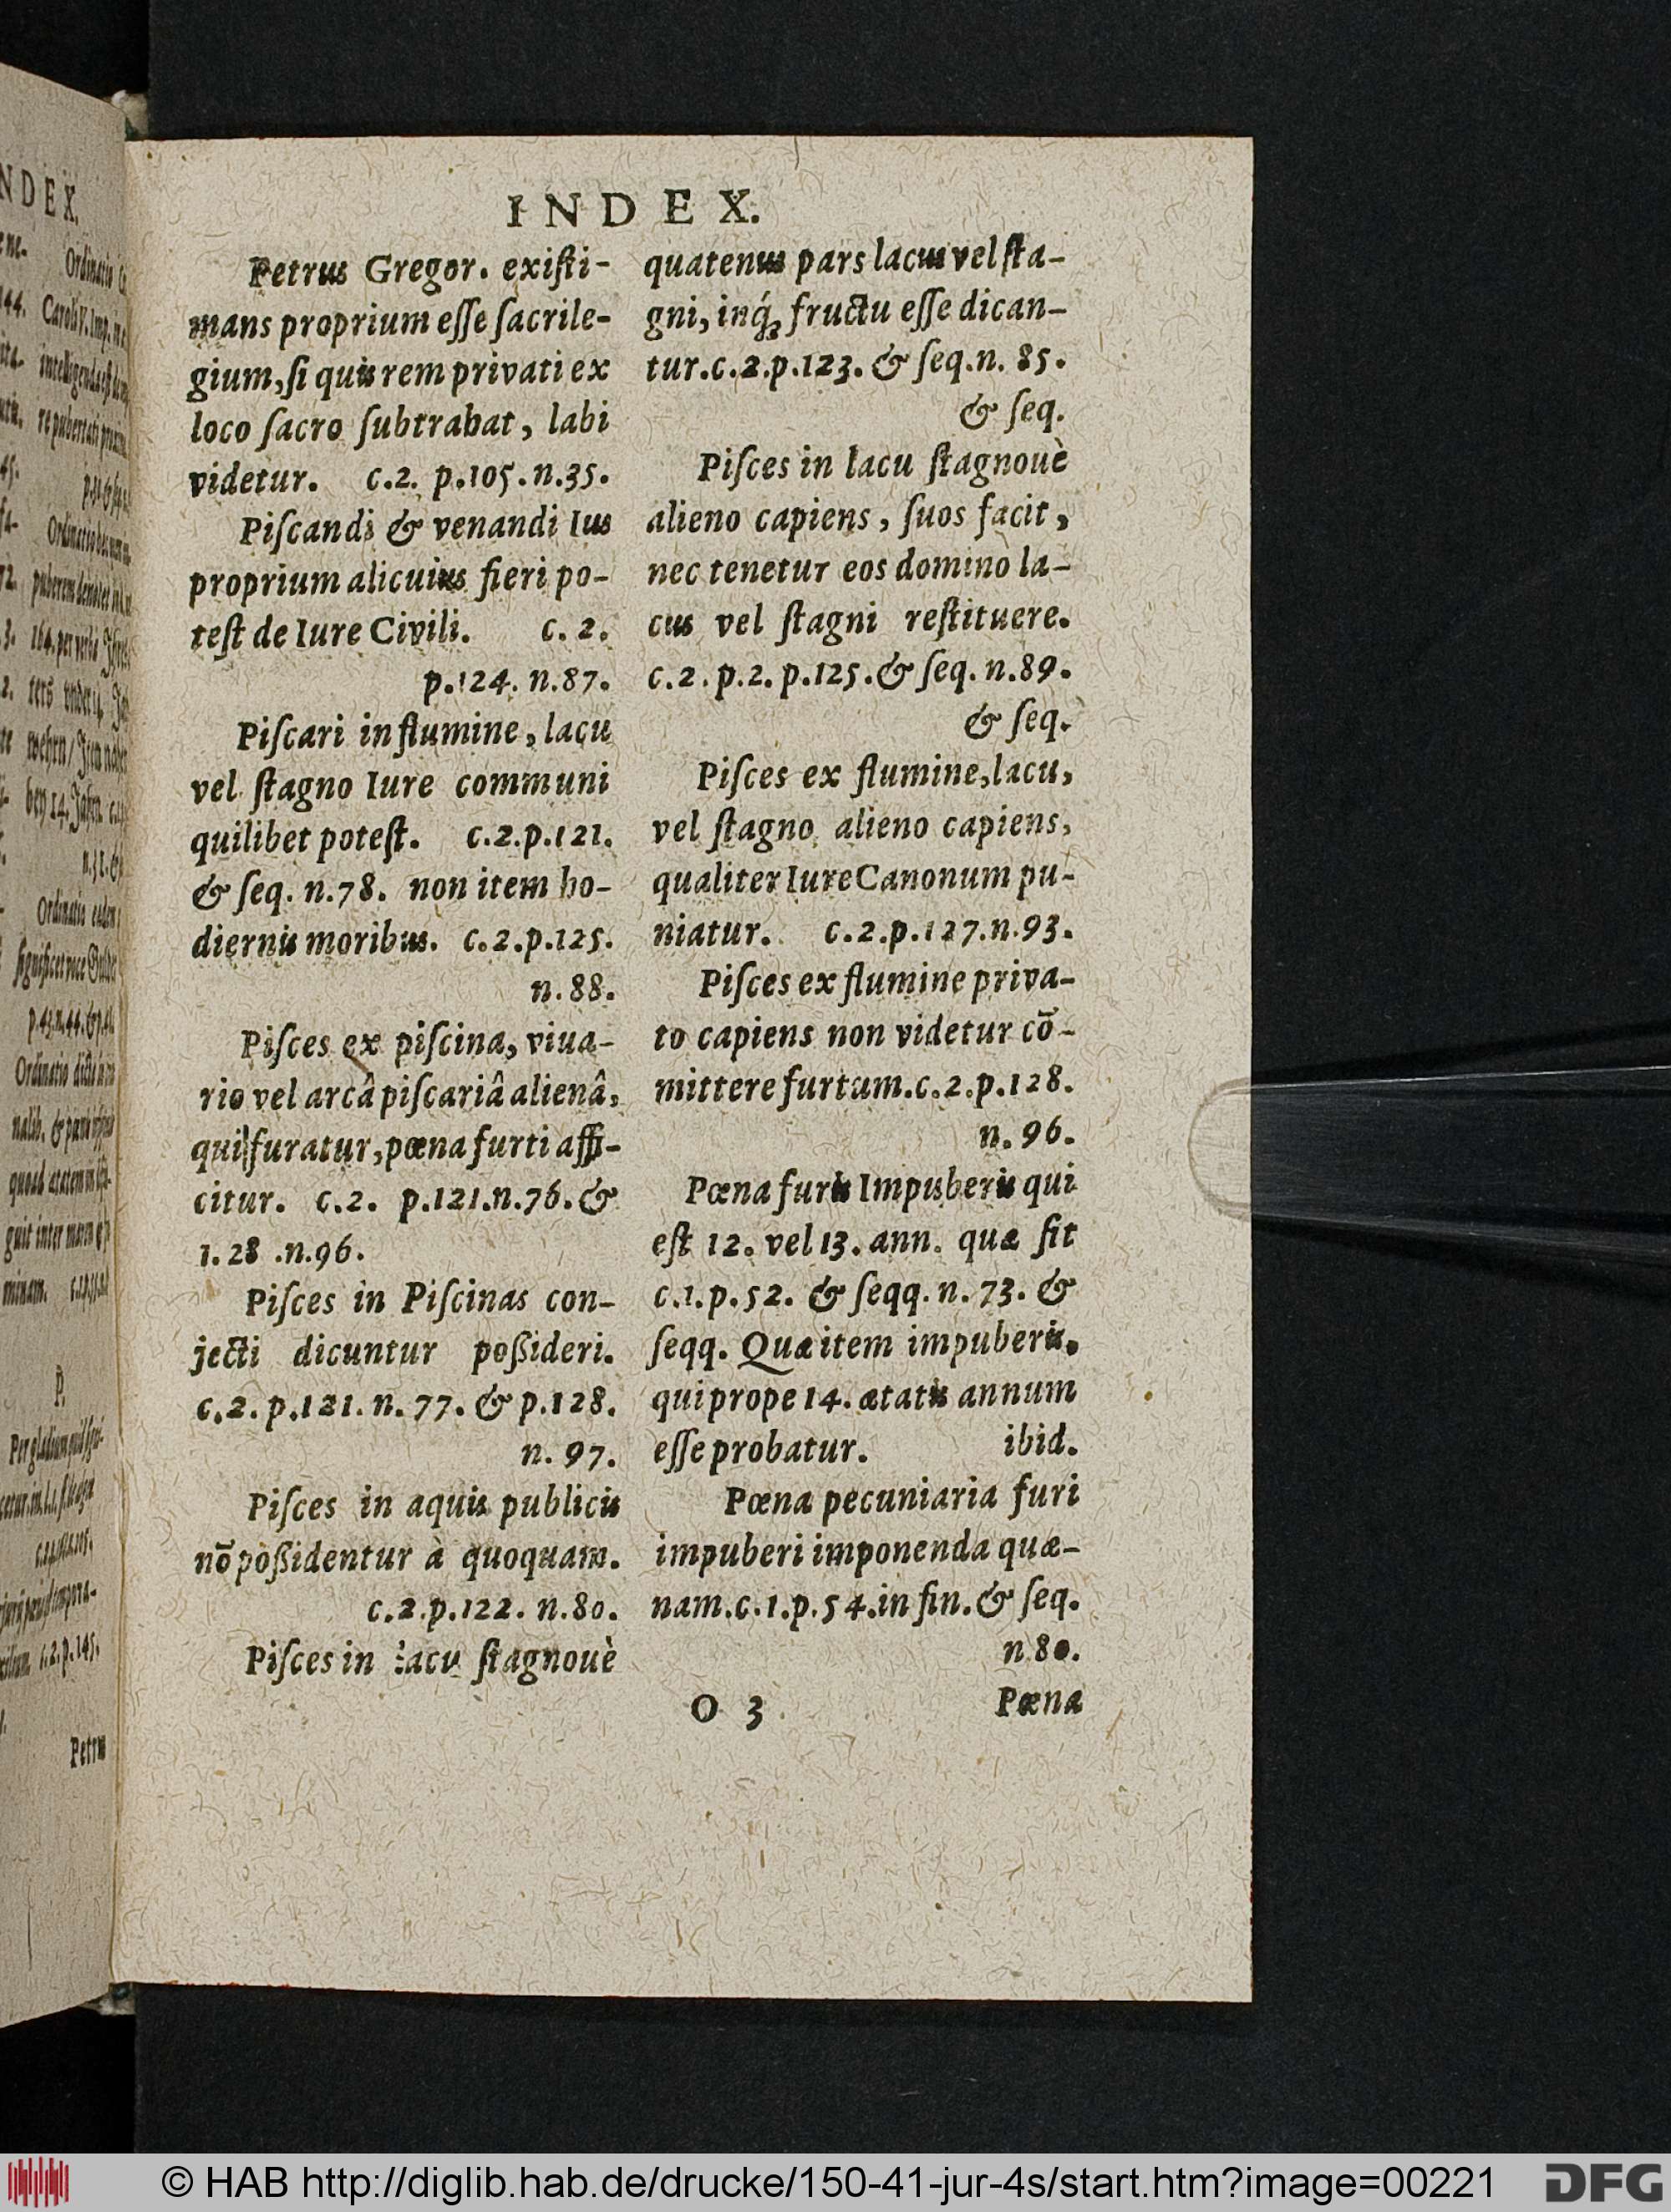 INDEX.
Petrus Gregor. existi-
mans proprium eſſe ſacrile-
gium, ſi quis rem privati ex
loco ſacro ſubtrahat, labi
videtur. c.2. p.105.n.35.
Piſcandi & venandi Ius
proprium alicuius fieri po-
teſt de Iure Civili. c. 2.
p.124. n.87.
Piſcari in flumine, lacu
vel ſtagno Iure communi
quilibet poteſt. c.2.p.121.
& ſeq. n.78. non item ho-
diernis moribus. c.2.p.125.
n. 88.
Piſces ex piſcina, viua-
rio vel arcâ piſcariâ alienâ,
qui furatur, pœna furti affi-
citur. c.2. p.121.n.76.&
1.28 .n.96.
Piſces in Piſcinas con-
jecti dicuntur poßideri.
c.2.p.121. n. 77. & p.128.
n. 97.
Piſces in aquis publicis
nō poßidentur à quoquam.
c.2.p.122. n.80.
Piſces in lacu ſtagnouè
quatenus pars lacus vel ſta-
gni, inq́ꝫ fructu eſſe dican-
tur.c.2.p.123. & ſeq.n. 85.
& ſeq.
Piſces in lacu ſtagnouè
alieno capiens, ſuos facit,
nec tenetur eos domino la-
cus vel ſtagni reſtituere.
c.2.p.2. p.125.& ſeq. n.89.
& ſeq.
Piſces ex flumine, lacu,
vel ſtagno alieno capiens,
qualiter Iure Canonum pu-
niatur. c.2.p.127.n.93.
Piſces ex flumine priva-
to capiens non videtur cō-
mittere furtum.c.2.p.128.
n. 96.
Pœna furis Impuberis qui
eſt 12. vel 13. ann. quæ ſit
c.1.p.52. & ſeqq. n. 73. &
ſeqq. Quæ item impuberis.
qui prope 14. ætatis annum
eſſe probatur. ibid.
Pœna pecuniaria furi
impuberi imponenda quæ-
nam.c.1.p.54.in fin.& ſeq.
n 80.
O 3 Pœna
© HAB http://diglib.hab.de/drucke/150-41-jur-4s/start.htm?image=00221
DFG